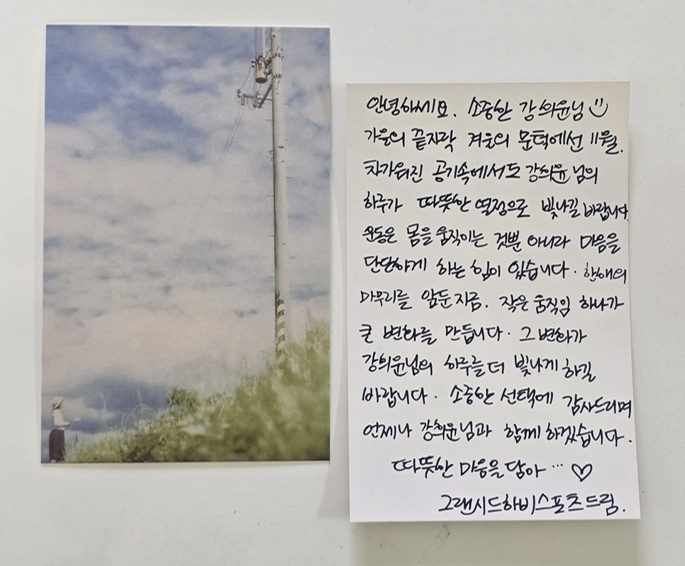 안녕하세요. 소중한 강희윤님
가을의 끝자락 겨울의 문턱에선 11월.
차가워진 공기속에서도 강희윤님의
하루가 따뜻한 열정으로 빛나길 바랍니다
운동은 몸을 움직이는 것뿐 아니라 마음을
단단하게 하는 힘이 있습니다. 한해의
마무리를 앞둔지금. 작은 움직임 하나가
큰 변화를 만듭니다. 그 변화가
강희윤님의 하루를 더 빛나게 하길
바랍니다. 소중한 선택에 감사드리며
언제나 강희윤님과 함께 하겠습니다.
따뜻한 마음을 담아… ♡
그랜시드하비스포츠드림.